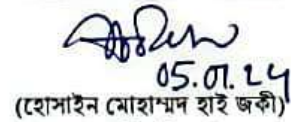 05.01.24
(হোসাইন মোহাম্মদ হাই জকী)